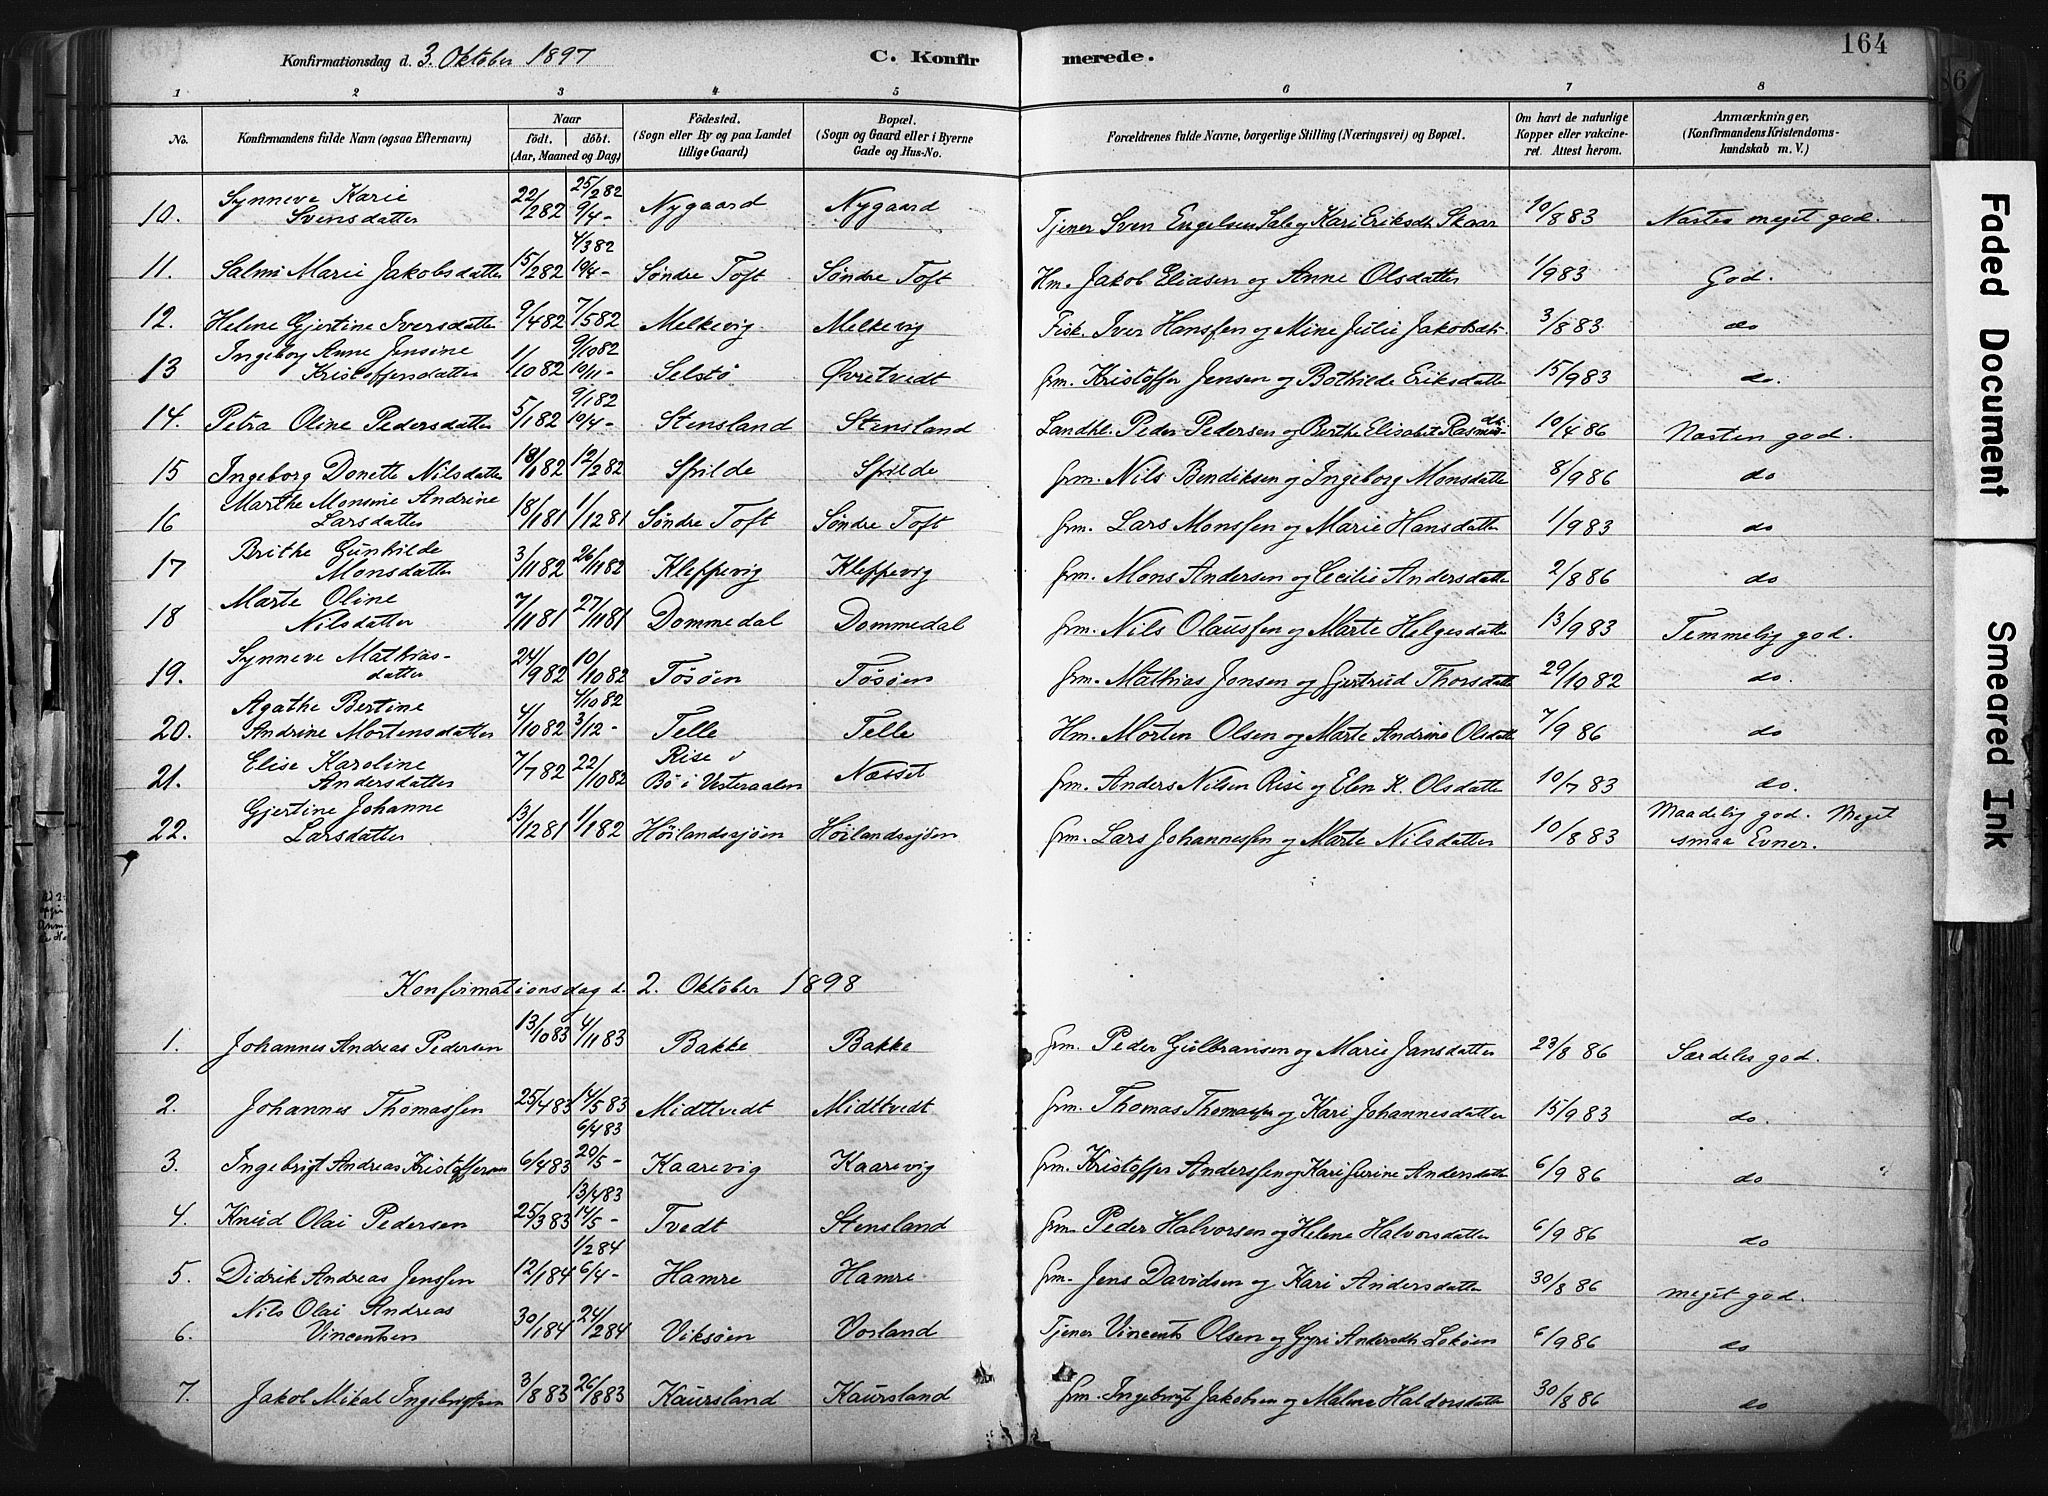 Konfirmationsdag d. 3. Oktober 1897
C. Konfirmerede.
164
1 2 3 4 5 6 7 8
No.
Konfirmandens fulde Navn (ogsaa Efternavn)
Naar
födt. döbt.
(Aar, Maaned og Dag)
Födested.
(Sogn eller By og paa Landet tillige Gaard)
Bopæl.
(Sogn og Gaard eller i Byerne Gade og Hus-No.
Forældrenes fulde Navne, borgerlige Stilling (Næringsvei) og Bopæl.
Om havt de naturlige Kopper eller vakcineret. Attest herom.
Anmærkninger,
(Konfirmandens Kristendomskundskab m. V.)
10. Synneve Karie Svensdatter 22/2 82 25/2 82 9/4 - Nygaard Nygaard Tjener Sven Engelsen Sale og Kari Eriksdtr Skaar 10/8 83 Næsten meget god.
11. Salmi Marie Jakobsdatter 15/2 82 4/3 82 10/4 - Søndre Toft Søndre Toft Hm. Jakob Eliasen og Anne Olsdatter 1/9 83 God.
12. Helene Gjertine Iversdatter 9/4 82 7/5 82 Melkevig Melkevig Fisk. Iver Hanssen og Mine Julie Jakobsdtr. 3/8 83 do
13 Ingeborg Anne Jensine Kristoffersdatter 1/10 82 9/10 82 19/11 - Selstø Øvretvedt Grm. Kristoffer Jensen og Bothilde Eriksdatter 15/9 83 do.
14. Petra Oline Pedersdatter 5/1 82 9/1 82 10/4 - Stensland Stensland Landhl. Peder Pedersen og Berthe Elisabet Rasmusdtr 10/4 86 Næsten god.
15 Ingeborg Donette Nilsdatter 18/1 82 12/2 82 Spilde Spilde Grm. Nils Bendiksen og Ingeborg Monsdatter 8/9 86 do
16 Marthe Monsine Andrine Larsdatter 18/11 81 1/12 81 Søndre Toft Søndre Toft Grm. Lars Monssen og Marie Hansdatter 1/9 83 do
17 Brithe Gunhilde Monsdatter 3/11 82 26/11 82 Kleppevig Kleppevig Grm. Mons Andersen og Cecilie Andersdatter 2/8 86 do
18 Marte Oline Nilsdatter 7/11 81 27/11 81 Dommedal Dommedal Grm. Nils Olaussen og Marte Helgesdatter 13/9 83 Temmelig god.
19. Synneve Mathiasdatter 24/9 82 10/10 82 Tøsøen Tøsøen Grm. Mathias Jonsen og Gjertrud Thorsdatter 29/10 82 do.
20. Agathe Bertine Andrine Mortensdatter 4/10 82 4/10 82 3/12 - Telle Telle Hm. Morten Olsen og Marte Andrine Olsdatter 7/9 86 do
21. Elise Karoline Andersdatter 7/7 82 22/10 82 Rise i Bø i Vesteraalen Næsset Grm. Anders Nilsen Rise og Elen K. Olsdatter 10/7 83 do.
22. Gjertine Johanne Larsdatter 13/12 81 1/1 82 Høilandssjøen Høilandssjøen Grm. Lars Johannessen og Marte Nilsdatter 10/8 83 Maadelig god. Meget smaa Evner.
Konfirmationsdag d. 2. Oktober 1898
1. Johannes Andreas Pedersen 13/10 83 4/11 83 Bakke Bakke Grm. Peder Gulbransen og Marie Jansdatter 23/8 86 Særdeles god.
2. Johannes Thomassen 25/4 83 14/5 83 Midttvedt Midttvedt Grm. Thomas Thomassen og Kari Johannesdatter 15/9 83 do.
3. Ingebrigt Andreas Kristoffersen 6/4 83 6/4 83 20/5 - Kaarevig Kaarevig Grm. Kristoffer Anderssen og Kari Gurine Andersdatter 6/9 86 do
4. Knud Olai Pedersen 25/3 83 13/4 83 14/5 - Tvedt Stensland Grm. Peder Halvorsen og Helene Halvorsdatter 6/9 86 do
5. Didrik Andreas Jenssen 12/1 84 1/2 84 6/4 - Hamre Hamre Grm. Jens Davidsen og Kari Andersdatter 30/8 86 meget god.
6. Nils Olai Andreas Vincentsen 30/1 84 24/2 84 Viksøen Vorland Tjener Vincents Olsen og Gyri Andersdtr Lokøen 6/9 86 do
7. Jakob Mikal Ingebrigtsen 3/8 83 26/8 83 Kaursland Kaursland Grm. Ingebrigt Jakobsen og Malene Haldorsdatter 30/8 86 do
Faded Document
Smeared Ink